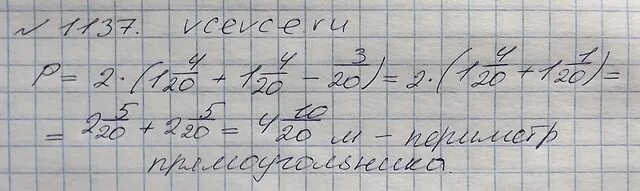 № 1137. vcevce.ru
P = 2·(1 4/20 + 1 4/20 − 3/20) = 2·(1 4/20 + 1 1/20) =
= 2 5/20 + 2 5/20 = 4 10/20 м – периметр
прямоугольника.